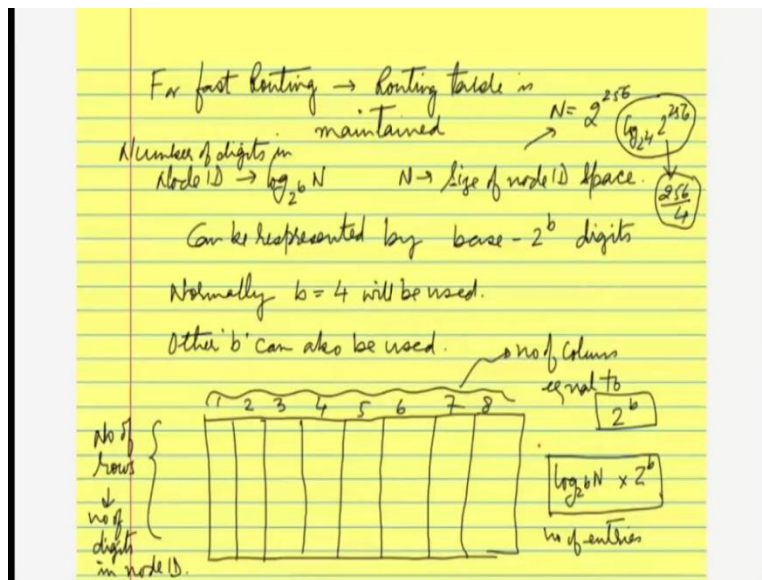 For fast Routing → Routing table is
maintained
N = 2^256
log_{2^4} 2^256
256/4
Number of digits in
Node ID → log_{2^b} N
N → Size of node ID Space.
Can be respresented by base - 2^b digits
Normally b = 4 will be used.
Other 'b' can also be used.
no of Colums
equal to
2^b
1 2 3 4 5 6 7 8
No of
rows
↓
no of
digits
in node ID.
log_{2^b} N × 2^b
no of entries